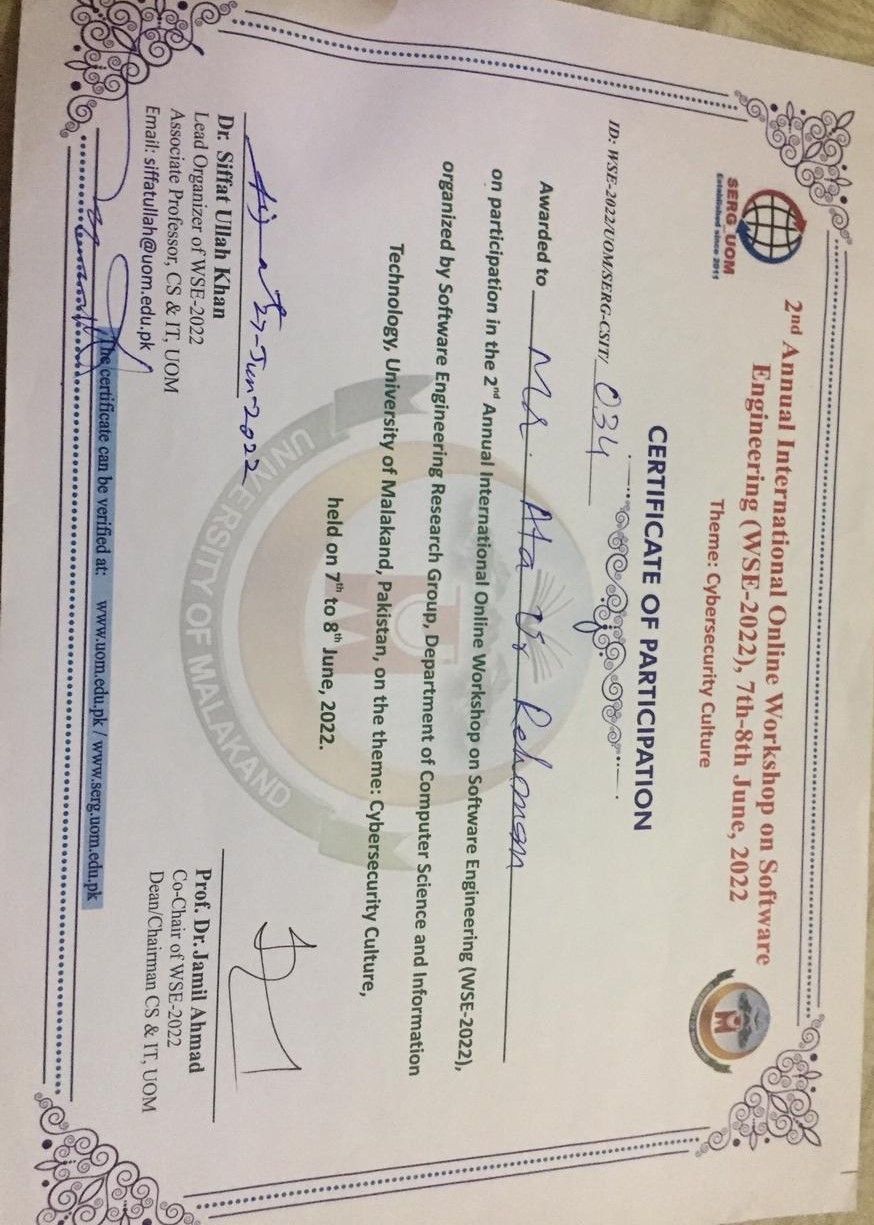 2nd Annual International Online Workshop on Software
Engineering (WSE-2022), 7th-8th June, 2022
Theme: Cybersecurity Culture
SERG_UOM
Established since 2011
CERTIFICATE OF PARTICIPATION
ID: WSE-2022/UOM/SERG-CSIT/ 034
Awarded to Mr. Ata Ur Rehman
on participation in the 2nd Annual International Online Workshop on Software Engineering (WSE-2022),
organized by Software Engineering Research Group, Department of Computer Science and Information
Technology, University of Malakand, Pakistan, on the theme: Cybersecurity Culture,
held on 7th to 8th June, 2022.
UNIVERSITY OF MALAKAND
27-Jun-2022
Dr. Siffat Ullah Khan
Lead Organizer of WSE-2022
Associate Professor, CS & IT, UOM
Email: siffatullah@uom.edu.pk
Prof. Dr. Jamil Ahmad
Co-Chair of WSE-2022
Dean/Chairman CS & IT, UOM
The certificate can be verified at: www.uom.edu.pk / www.serg.uom.edu.pk